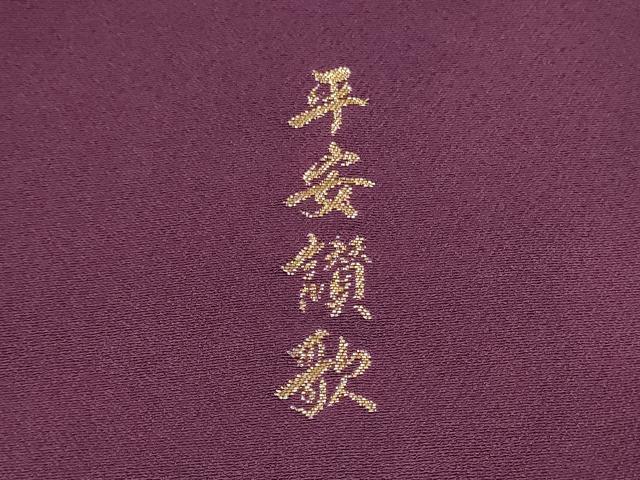 平安讃歌